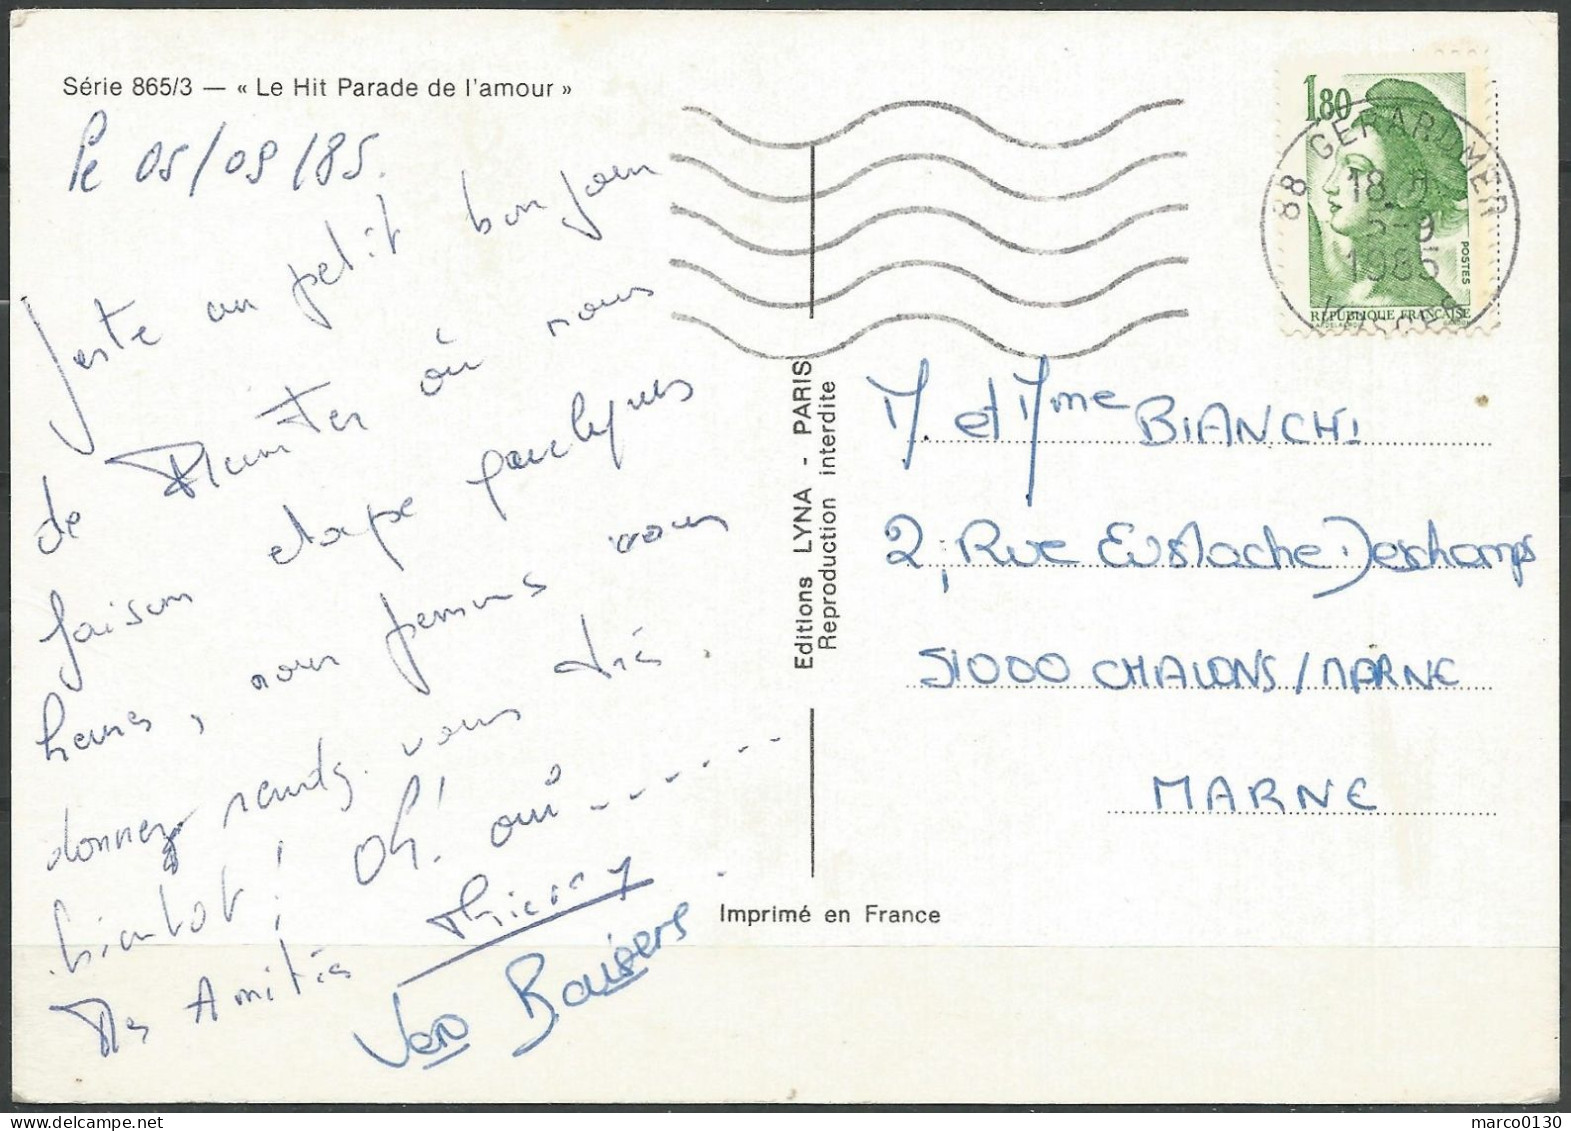 Série 865/3 — « Le Hit Parade de l'amour »
le 05/09/85.
Juste un petit bonjour
de Munster où nous
faison etape quelques
heures, nous pensons vous
donnez rendez-vous très
bientot! Oh! oui------.
Mes Amitiés Thierry
Vero Baisers
Editions LYNA - PARIS
Reproduction interdite
Imprimé en France
1,80
POSTES
REPUBLIQUE FRANÇAISE
88 GERARDMER
18 H
5-9
1985
VOSGES
M. et Mme BIANCHI
2, Rue Eustache Deschamps
51000 CHALONS/MARNE
MARNE
marco0130